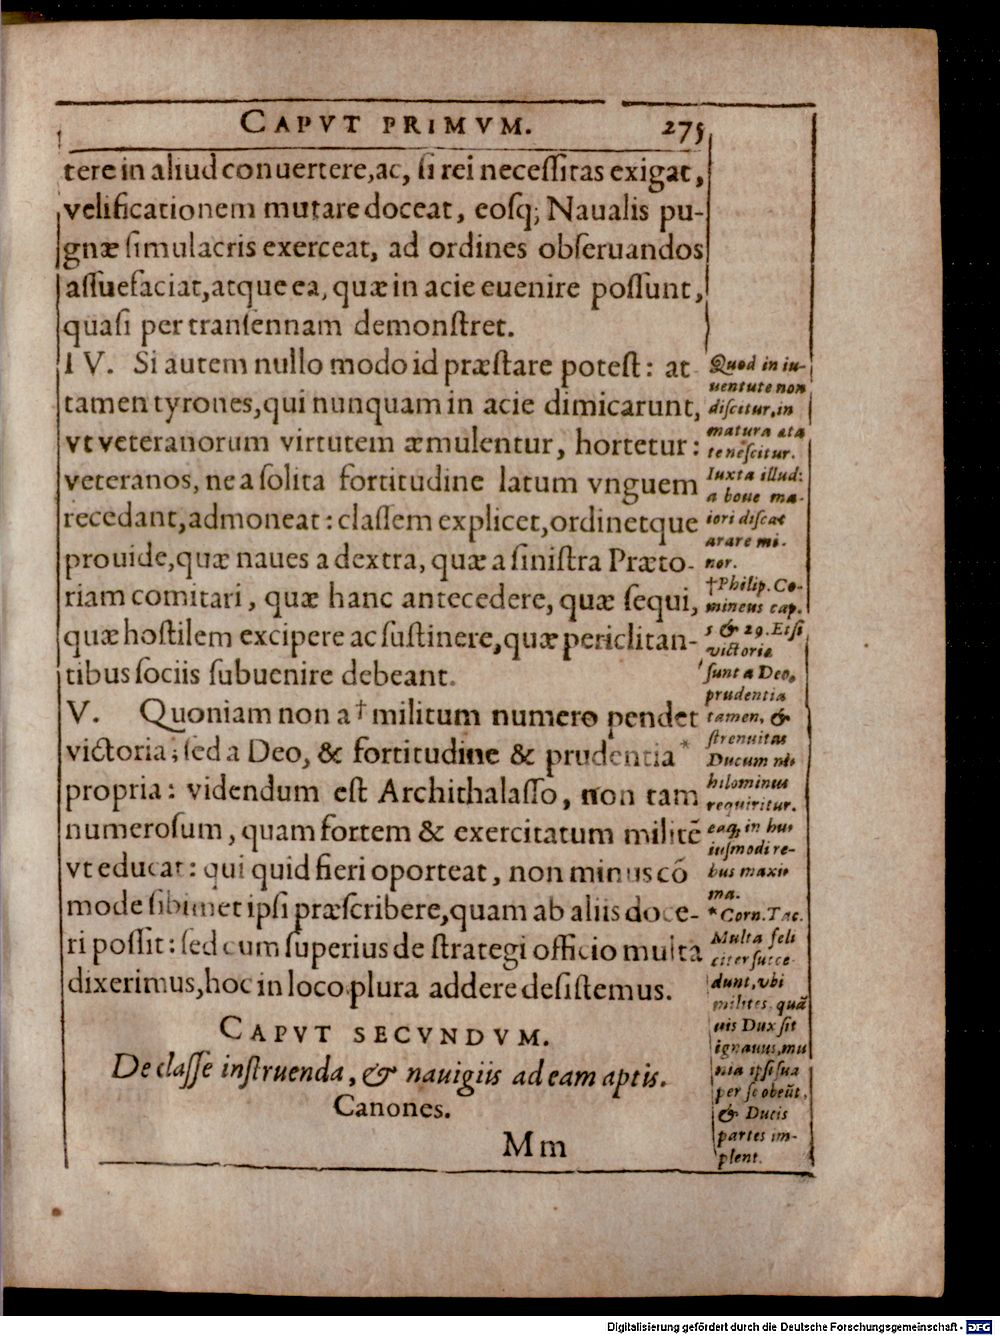 CAPVT PRIMVM. 275
tere in aliud conuertere, ac, si rei necessitas exigat,
velificationem mutare doceat, eosq; Naualis pu-
gnæ simulacris exerceat, ad ordines obseruandos
assuefaciat, atque ea, quæ in acie euenire possunt,
quasi per transennam demonstret.
IV. Si autem nullo modo id præstare potest: at
tamen tyrones, qui nunquam in acie dimicarunt,
vt veteranorum virtutem æmulentur, hortetur:
veteranos, ne a solita fortitudine latum vnguem
recedant, admoneat: classem explicet, ordinetque
prouide, quæ naues a dextra, quæ a sinistra Præto-
riam comitari, quæ hanc antecedere, quæ sequi,
quæ hostilem excipere ac sustinere, quæ periclitan-
tibus sociis subuenire debeant.
V. Quoniam non a † militum numero pendet
victoria; sed a Deo, & fortitudine & prudentia *
propria: videndum est Archithalasso, non tam
numerosum, quam fortem & exercitatum militē
vt educat: qui quid fieri oporteat, non minus cō
mode sibimet ipsi præscribere, quam ab aliis doce-
ri possit: sed cum superius de strategi officio multa
dixerimus, hoc in loco plura addere desistemus.
CAPVT SECVNDVM.
De classe instruenda, & nauigiis ad eam aptis.
Canones.
Mm
Quod in iu-
uentute non
discitur, in
matura æta
te nescitur.
Iuxta illud:
a boue ma-
iori discat
arare mi-
nor.
† Philip. Co-
mineus cap.
5 & 29. Etsi
victoriæ
sunt a Deo,
prudentia
tamen, &
strenuitas
Ducum ni-
hilominus
requiritur.
eaq; in hu-
iusmodi re-
bus maxi-
ma.
* Corn. Tac.
Multa feli
citer succe-
dunt, vbi
milites, quā
uis Dux sit
ignauus, mu
nia ipsi sua
per se obeūt,
& Ducis
partes im-
plent.
Digitalisierung gefördert durch die Deutsche Forschungsgemeinschaft - DFG